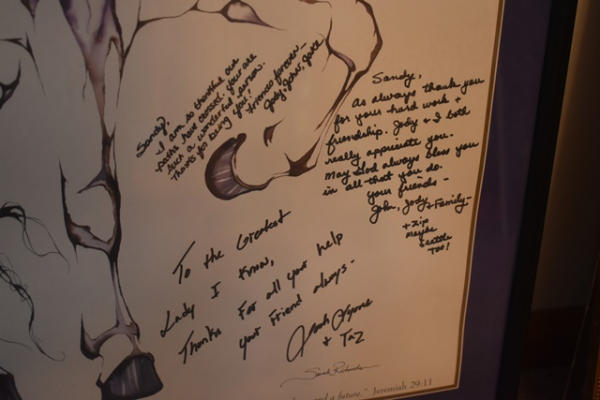 Sandy,
I am so thankful our
paths have crossed, you are
such a wonderful person.
Thanks for being you!
Friends forever-
Jody, John, Jake
Sandy,
As always thank you
for your hard work +
friendship. Jody + I both
really appriciate you.
May God always bless you
in all that you do.
your friends -
John, Jody + Family -
+ Zip
Maybe
Seattle
Too!
To the Greatest
Lady I Know,
Thanks For all your help
your Friend always -
+ Taz
a future." Jeremiah 29:11